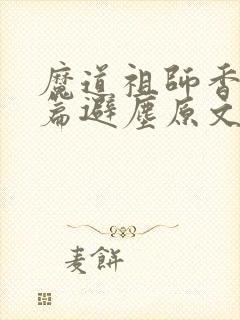 魔道祖師香
篇避塵原文
麦餅